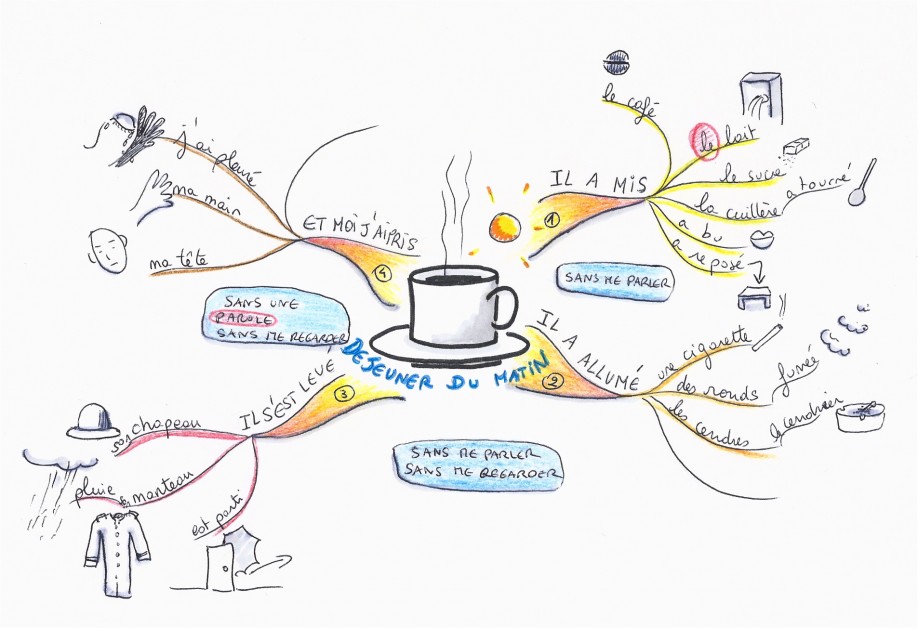 DEJEUNER DU MATIN
1
IL A MIS
le café
le lait
le sucre
la cuillère
a tourné
a bu
a reposé
SANS ME PARLER
2
IL A ALLUMÉ
une cigarette
des ronds
fumée
des cendres
le cendrier
SANS ME PARLER
SANS ME REGARDER
3
IL S'EST LEVÉ
son chapeau
manteau
pluie
est parti
SANS UNE
PAROLE
SANS ME REGARDER
4
ET MOI J'AI PRIS
ma tête
ma main
j'ai pleuré